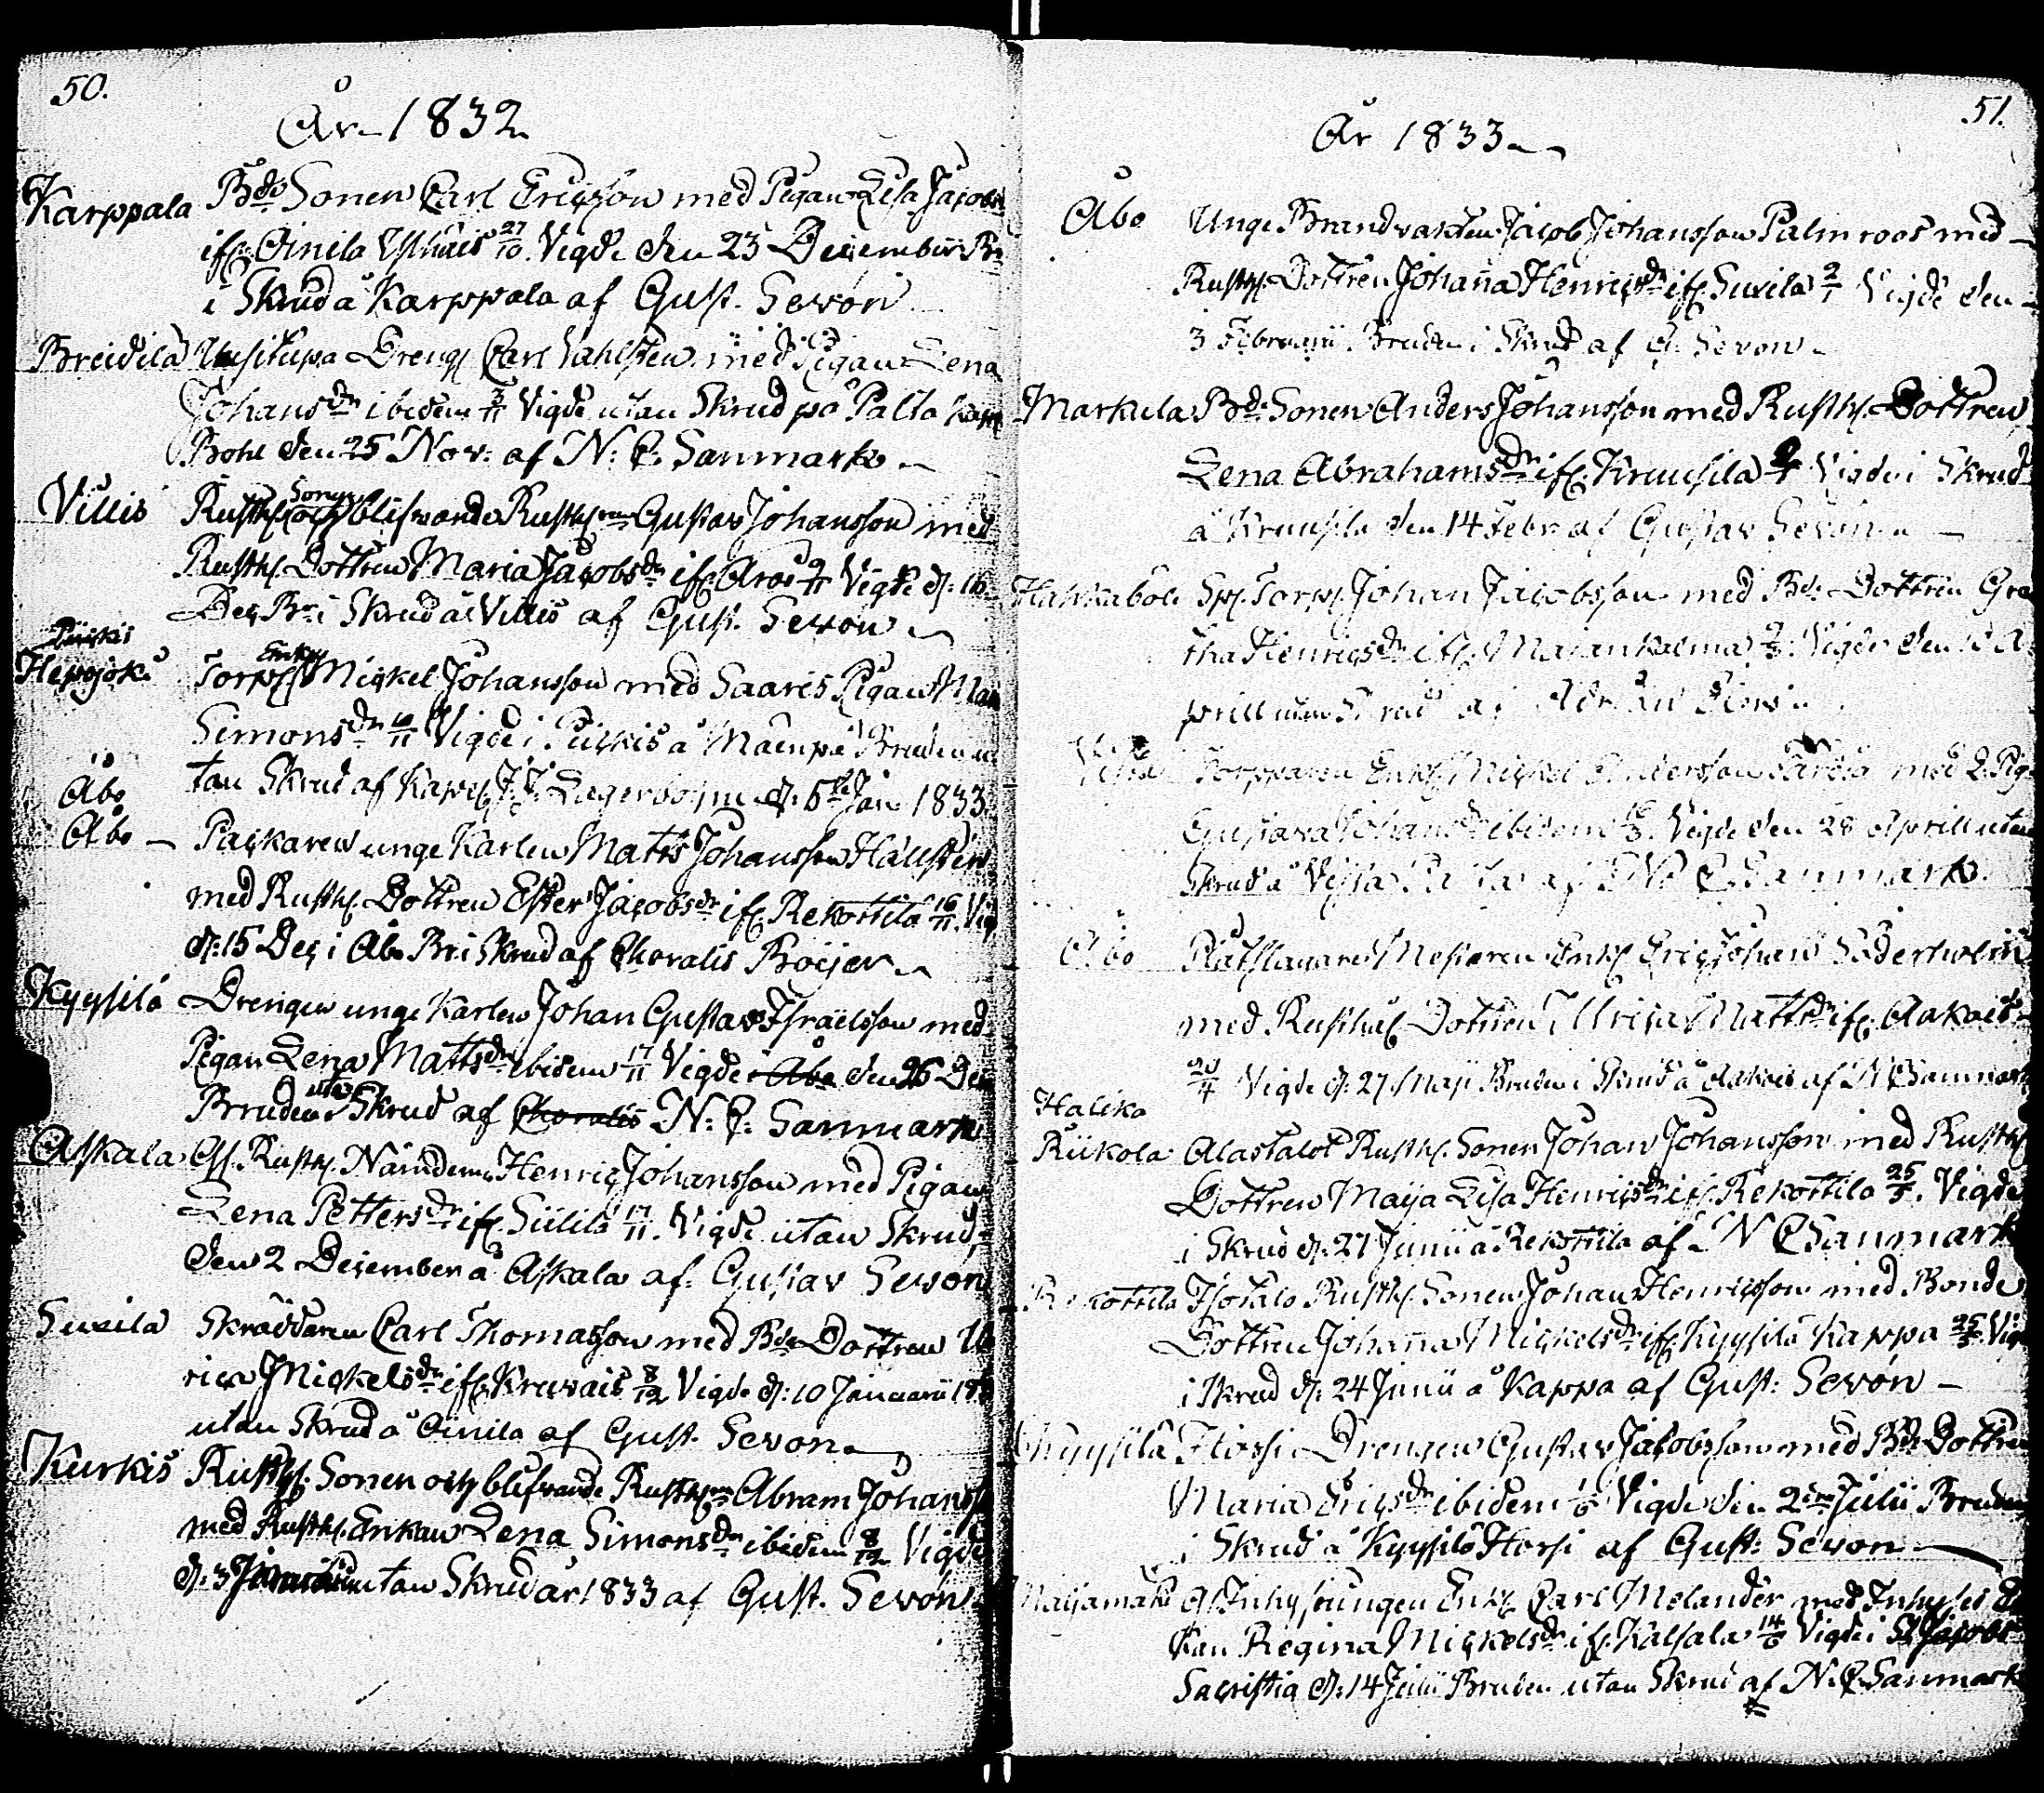 50.
År 1832
Karppala Bde Sonen Carl Ericsson med Pigan Lisa Jacobs
ifr. Oinila 27/10. Vigde den 23 December Br:
i Skrud å Karppala af Gust. Sevón
Breidila Uusitupa Dreng Carl Vahlsten med Pigan Lena
Johansdr ibidem 3/11 Vigde utan Skrud på Palta
Bohl den 25 Nov: af N: C. Sanmark
Villis Rusth. Sonen och blifvande Rusthn Gustav Johansson med
Rusth. Dottren Maria Jacobsdr ifr. Aros 9/11 Vigde d. 16
Dec Br: i Skrud å Villis af Gust. Sevón
Piikis
Hepojok: Torp Enkl Mickel Johansson med Saaris Pigan Maria
Simonsdr 10/11 Vigde i Piickis å Mäenpä Bruden u
Åbo tan Skrud af Kapell J. J. Lagerbohm d. 6te Jan 1833.
Åbo – Packaren unge Karlen Matts Johansson Hallsten
med Rusth. Dottren Ester Jacobsdr ifr. Rekottila 16/11. Vig
d. 15 Dec i Åbo Br: i Skrud af Choralis Boijer
Kyysilä Drengen unge Karlen Johan Gustav Israelsson med
Pigan Lena Mattsdr ibidem 17/11 Vigde i Åbo den 26 Dec
Bruden utan Skrud af Choralis N: C: Sanmark
Askala Gl. Rusth. Nämdem: Henric Johansson med Pigan
Lena Pettersdr ifr. Siililä 17/11. Vigde utan Skrud
den 2 December å Askala af Gustav Sevón
Suxila Skräddaren Carl Thomasson med Bde Dottren Ul
rica Mickelsdr ifr. Krevais 8/12 Vigde d: 10 Januarii 183
utan Skrud å Oinila af Gust. Sevon
Kurkis Rusth. Sonen och blifvande Rusthn Abram Johans
med Rusth. Enkan Lena Simonsdr ibidem 8/12 Vigde
d: 3 utan Skrud år 1833 af Gust. Sevón
51.
År 1833
Åbo Unge Brandvakten Jacob Johansson Palmroos med
Rusth. Dottren Johanna Henricsdr ifr. Suxila 2/1 Vigde den
3 Februarii Bruden i Skrud af G. Sevon
Markula Bde Sonen Anders Johansson med Rusth. Dottren
Lena Abrahamsdr ifr. Kruusila Vigde i Skrud
å Kruusila den 14 Febr af Gustav Sevón
Hakkaböle Torp. Johan Jacobsson med Bde Dottren Gre
tha Henricsdr ifr. Marankalma Vigde den A
prill utan Skrud af
Torpparen Enkl Mickel Andersson med Pig
Gustava Johansdr ibidem Vigde den 28 Aprill utan
Skrud å af N C Sanmark.
Åbo Mästaren Enkl Eric Johan Söderholm
med Rusth. Dottren Ulrica Mattsdr ifr. Aakois
20/4 Vigde d: 27 Maji Bruden i Skrud å Aakois af N C Sanmark
Haliko
Riikola Alastalot Rusth. Sonen Johan Johansson med Rusth
Dottren Maija Lisa Henricsdr ifr. Rekottila 25/5. Vigde
i Skrud d: 27 Junii å Rekottila af N C Sanmark
Rekottila Isotalo Rusth. Sonen Johan Henricsson med Bonde
Dottren Johanna Mickelsdr ifr. Kyysilä Kappa 25/5 Vigde
i Skrud d: 24 Junii å Kappa af Gust: Sevón
Kyysilä Horsi Drengen Gustav Jacobsson med Bde Dottren
Maria Ericsdr ibidem Vigde den 2dra Julii Bruden
i Skrud å Kyysilä Horsi af Gust: Sevon
Maijamäki Gl Inhysungen Enkl Carl Melander med Inhyses En
kan Regina Mickelsdr ifr. Kalsala 14/6 Vigde i St Jacobs
Sacristia d: 14 Julii Bruden utan Skrud af N. C. Sanmark